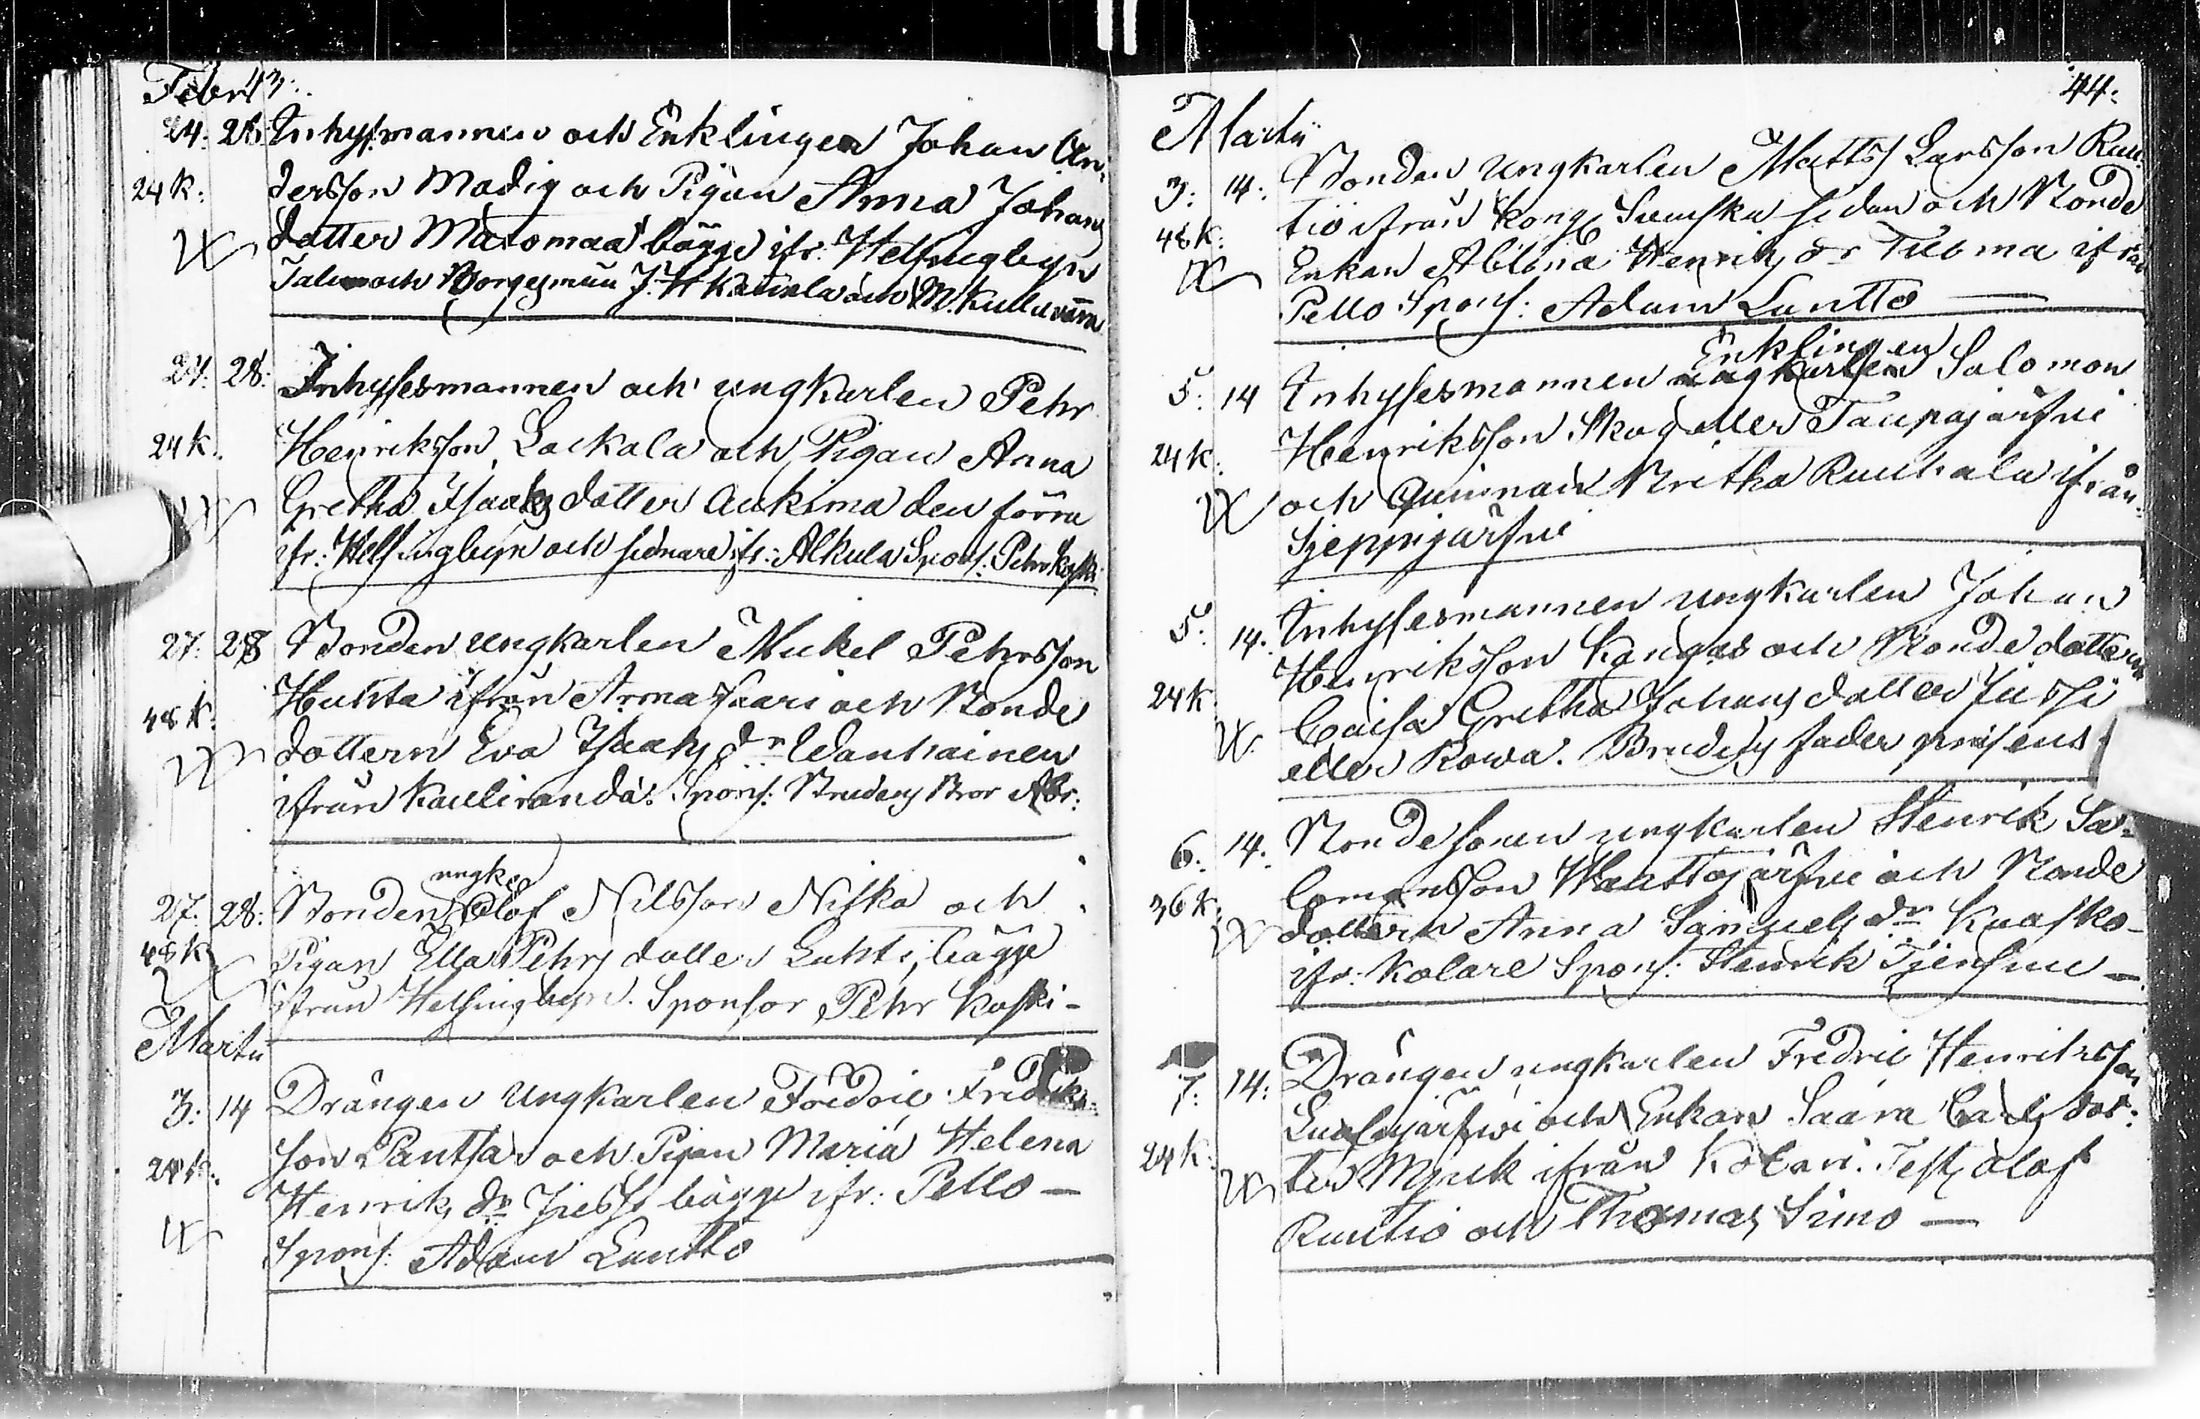 Febr 43.
24: 28 Inhysmannen och Enklingen Johan An-
24 k: dersson Madig och Pigan Anna Johans
dotter Matomaa bägge ifr: Helsingbyn
och Borgesmän J. H. och M.
27: 28: Inhysesmannen och ungkarlen Pehr
24 k. Henriksson Lackala och Pigan Anna
Gretha Isaaks dotter Aukima den förra
ifr: Helsingbyn och sednare ifr: Alkula Spons: Pehr Koski
27: 28 Bonden ungkarlen Mickel Pehrsson
48 k: Huhta ifrån Armassaari och Bonde
dottern Eva Isaaks dr Wanhainen
ifrån Kauliranda. Spons: Brudens Bror Abr:
ungk.
27. 28: Bonden Olof Nilsson Niska och
48 k Pigan Ella Pehrs dotter Luhti, bägge
ifrån Helsingbyn. Sponsor Pehr Koski -
Martii
3: 14 Drängen Ungkarlen Fredric Fredriks-
24 k. son Pantsa och Pigan Maria Helena
Henriks dr bägge ifr: Pello —
Spons: Adam Lantto
44:
Martii
3: 14: Bonden ungkarlen Matts Larsson Rau-
48 k: tio ifrån Kong Svenska sidan och Bonde
Enkan Albina Henriks dr Tuoma ifrån
Pello Spons: Adam Lantto —
Enklingen
5: 14 Inhysesmannen ungkarlen Salomon
24 k: Henriksson Skog eller Taupajärfvi
och Quinnan Britha Ruuhala ifrån
Sjeppijärfvi
5: 14. Inhysesmannen ungkarlen Johan
24 k Henriksson Kangas och Bonde dottern
Caisa Gretha Johans dotter Jussi
eller Rowa. Brudens fader præsens
6: 14. Bondesonen ungkarlen Henrik Sa-
36 k: lomonsson Wanttajärfvi och Bonde
dottern Anna Samuels dr Kuasko-
ifr: Kolare Spons: Henrik —
7: 14: Drängen ungkarlen Fredric Henriksson
och Enkan Saara Carls dot:
24 k: ter Myrek ifrån Kolari. Test. Olof
Rautio och Thomas Simo —